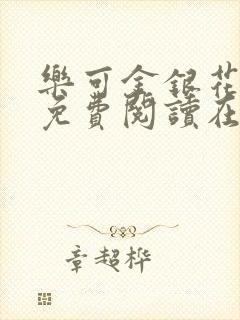 樂可金銀花
免費閱讀在
章超桦